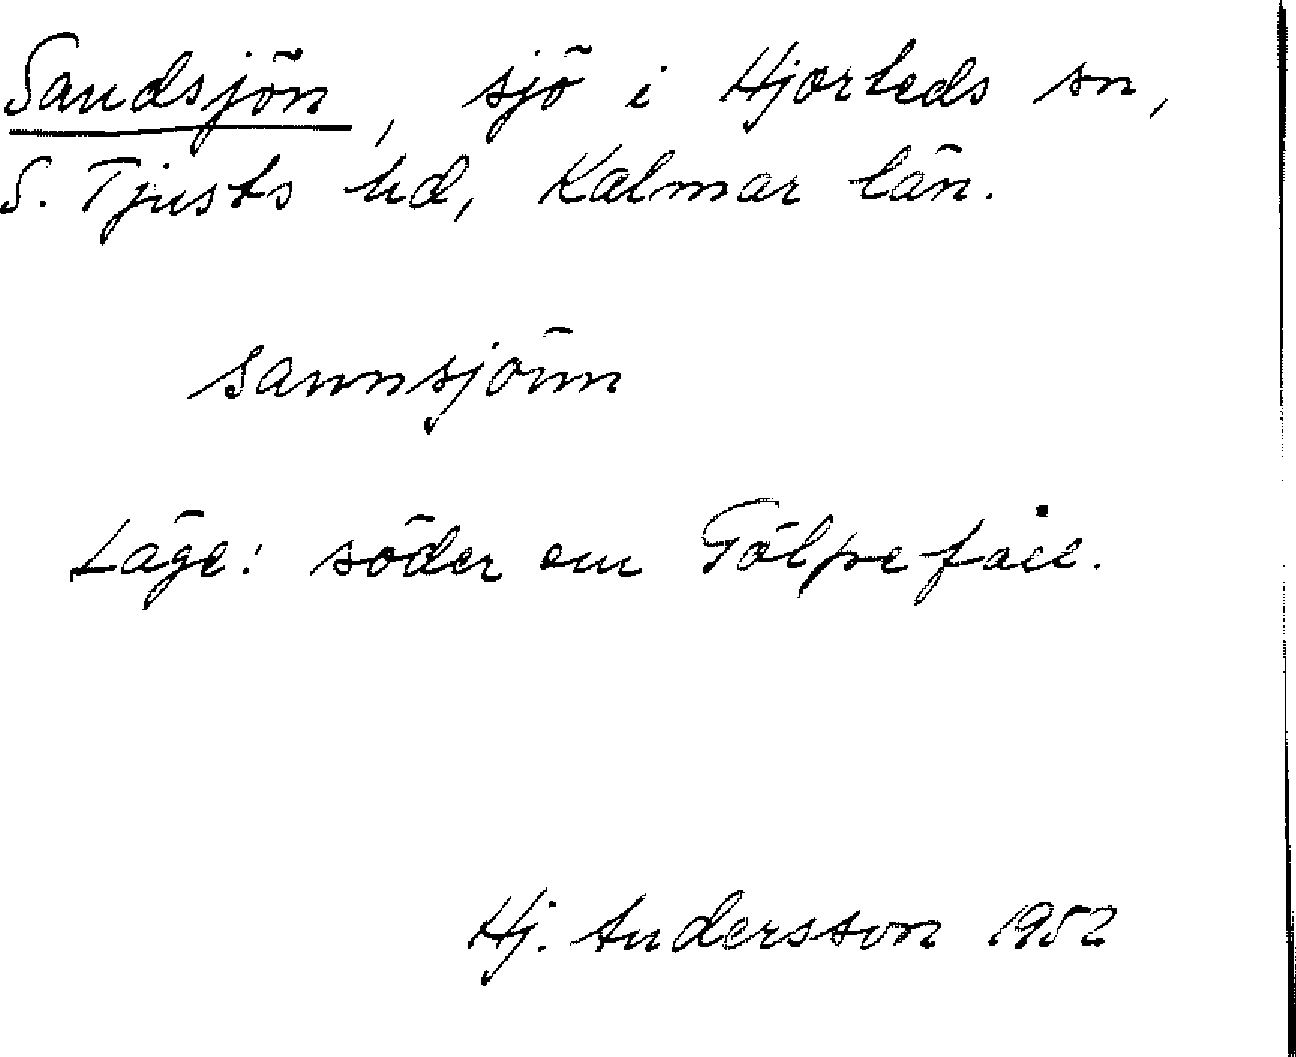 Sandsjön, sjö i Hjorteds sn,
S. Tjusts hd, Kalmar län.
sannsjönn
Läge: söder om Tölpefall.
Hj. Andersson 1952